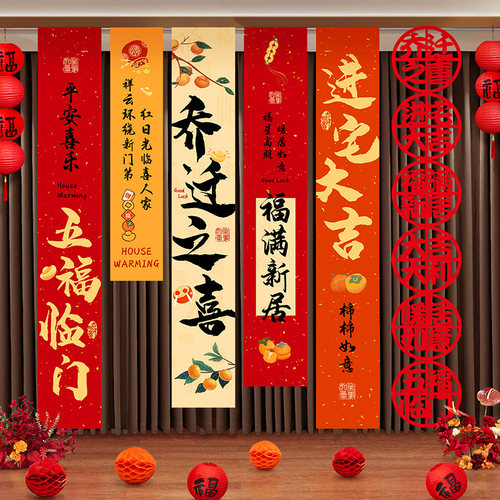 福
平安喜乐
House
Warming
五福临门
红日光临喜人家
祥云环绕新门第
HOUSE
WARMING
乔迁之喜
Good Luck
福星高照
Good Luck
福满新居
进宅大吉
柿柿如意
乔迁之喜
大吉大利
福
福